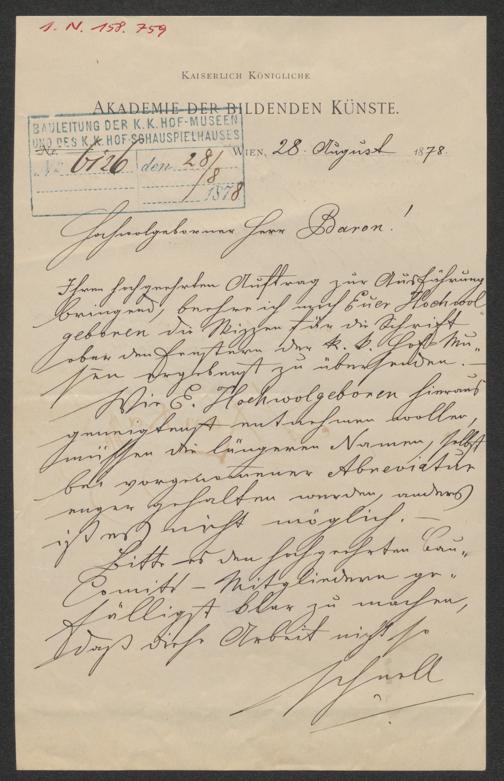 1. N. 158.759
KAISERLICH KÖNIGLICHE
AKADEMIE DER BILDENDEN KÜNSTE.
BAULEITUNG DER K.K. HOF-MUSEEN
UND DES K.K. HOF-SCHAUSPIELHAUSES
No 6126 den 28/8 1878
WIEN, 28. August 1878.
Hochwolgeborner Herr Baron!
Ihren hochgeehrten Auftrag zur Ausführung
bringend, beehre ich mich Euer Hochwol
geboren die Skizzen für die Schrift
ober den Fenstern der k. k. Hof-Mu-
seen ergebenst zu übersenden. –
Wie E. Hochwolgeboren hieraus
geneigtest entnehmen wollen,
müssen die längeren Namen, selbst
bei vorgenommener Abreviatur
enger gehalten werden, anders
ist es nicht möglich. –
Bitte es den hochgeehrten Bau-
Comité-Mitgliedern ge-
fälligst klar zu machen,
daß diese Arbeit nicht so
schnell